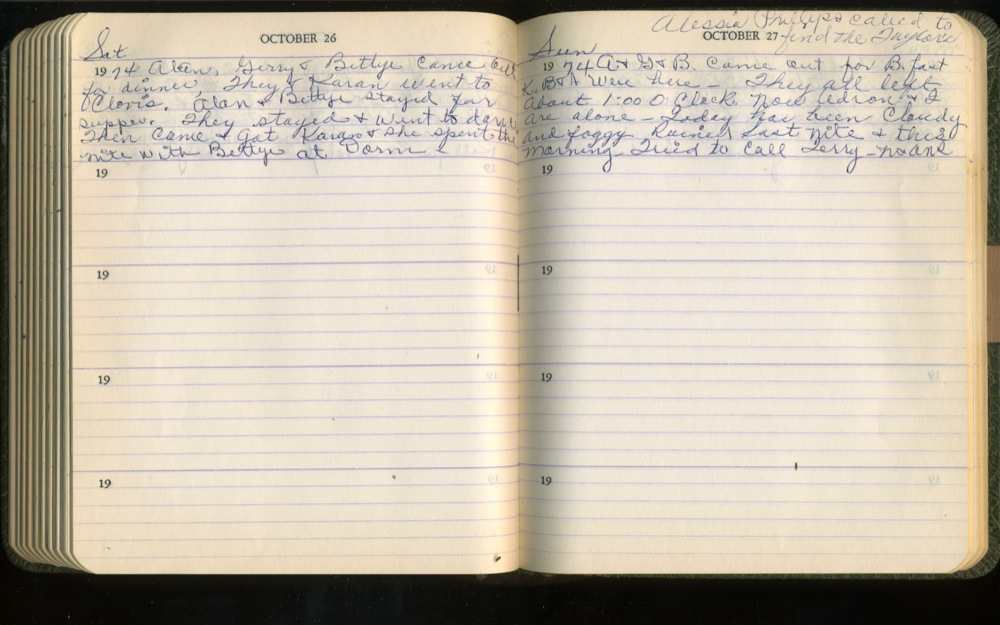 OCTOBER 26
Sat
1974 Alan, Gerry & Bettye came out
for dinner, They & Karan went to
Clovis. Alan & Bettye stayed for
supper. They stayed & went to dorm
Then came & got Karan & she spent the
nite with Bettye at Dorm -
19
19
19
19
Alessia Phillips called to
OCTOBER 27 find the Taylors
Sun
1974 A & G & B. came out for B. fast
K. B & A were here - They all left
about 1:00 O Clock. Now Adron & I
are alone - Today has been Cloudy
and foggy Rained Last nite & this
morning Tried to call Terry - no ans
19
19
19
19